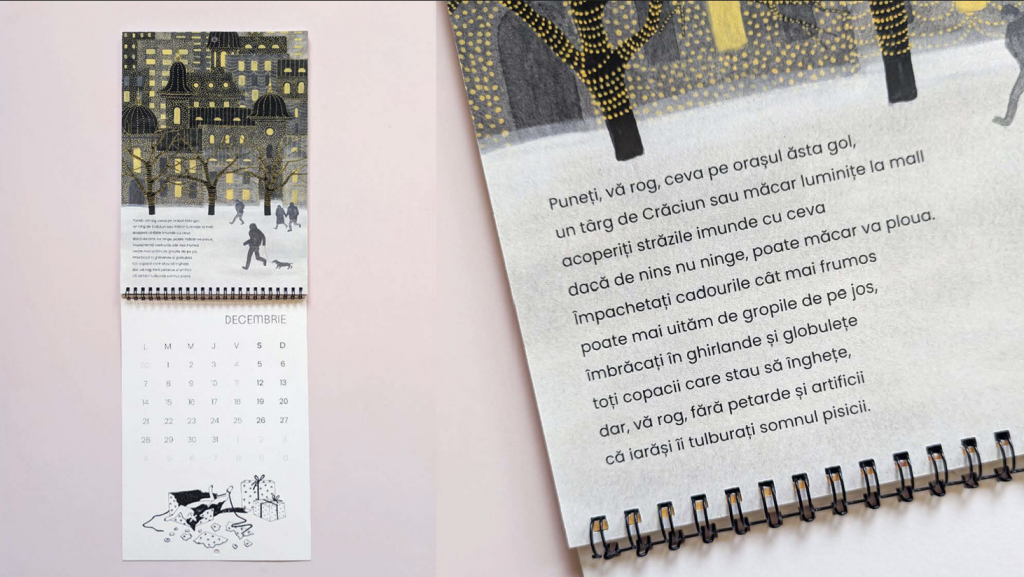 DECEMBRIE
L M M J V S D
30 1 2 3 4 5 6
7 8 9 10 11 12 13
14 15 16 17 18 19 20
21 22 23 24 25 26 27
28 29 30 31 1 2 3
4 5 6 7 8 9 10
Puneți, vă rog, ceva pe orașul ăsta gol,
un târg de Crăciun sau măcar luminițe la mall
acoperiți străzile imunde cu ceva
dacă de nins nu ninge, poate măcar va ploua.
împachetați cadourile cât mai frumos
poate mai uităm de gropile de pe jos,
îmbrăcați în ghirlande și globulețe
toți copacii care stau să înghețe,
dar, vă rog, fără petarde și artificii
că iarăși îi tulburați somnul pisicii.